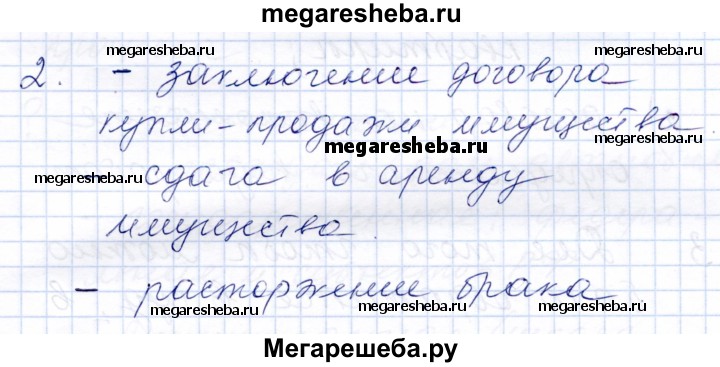 megaresheba.ru
megaresheba.ru megaresheba.ru
2. - заключение договора
megaresheba.ru megaresheba.ru
купли-продажи имущества.
megaresheba.ru
megaresheba.ru сдача в аренду megaresheba.ru
имущества.
- расторжение брака
megaresheba.ru megaresheba.ru
Мегарешеба.ру